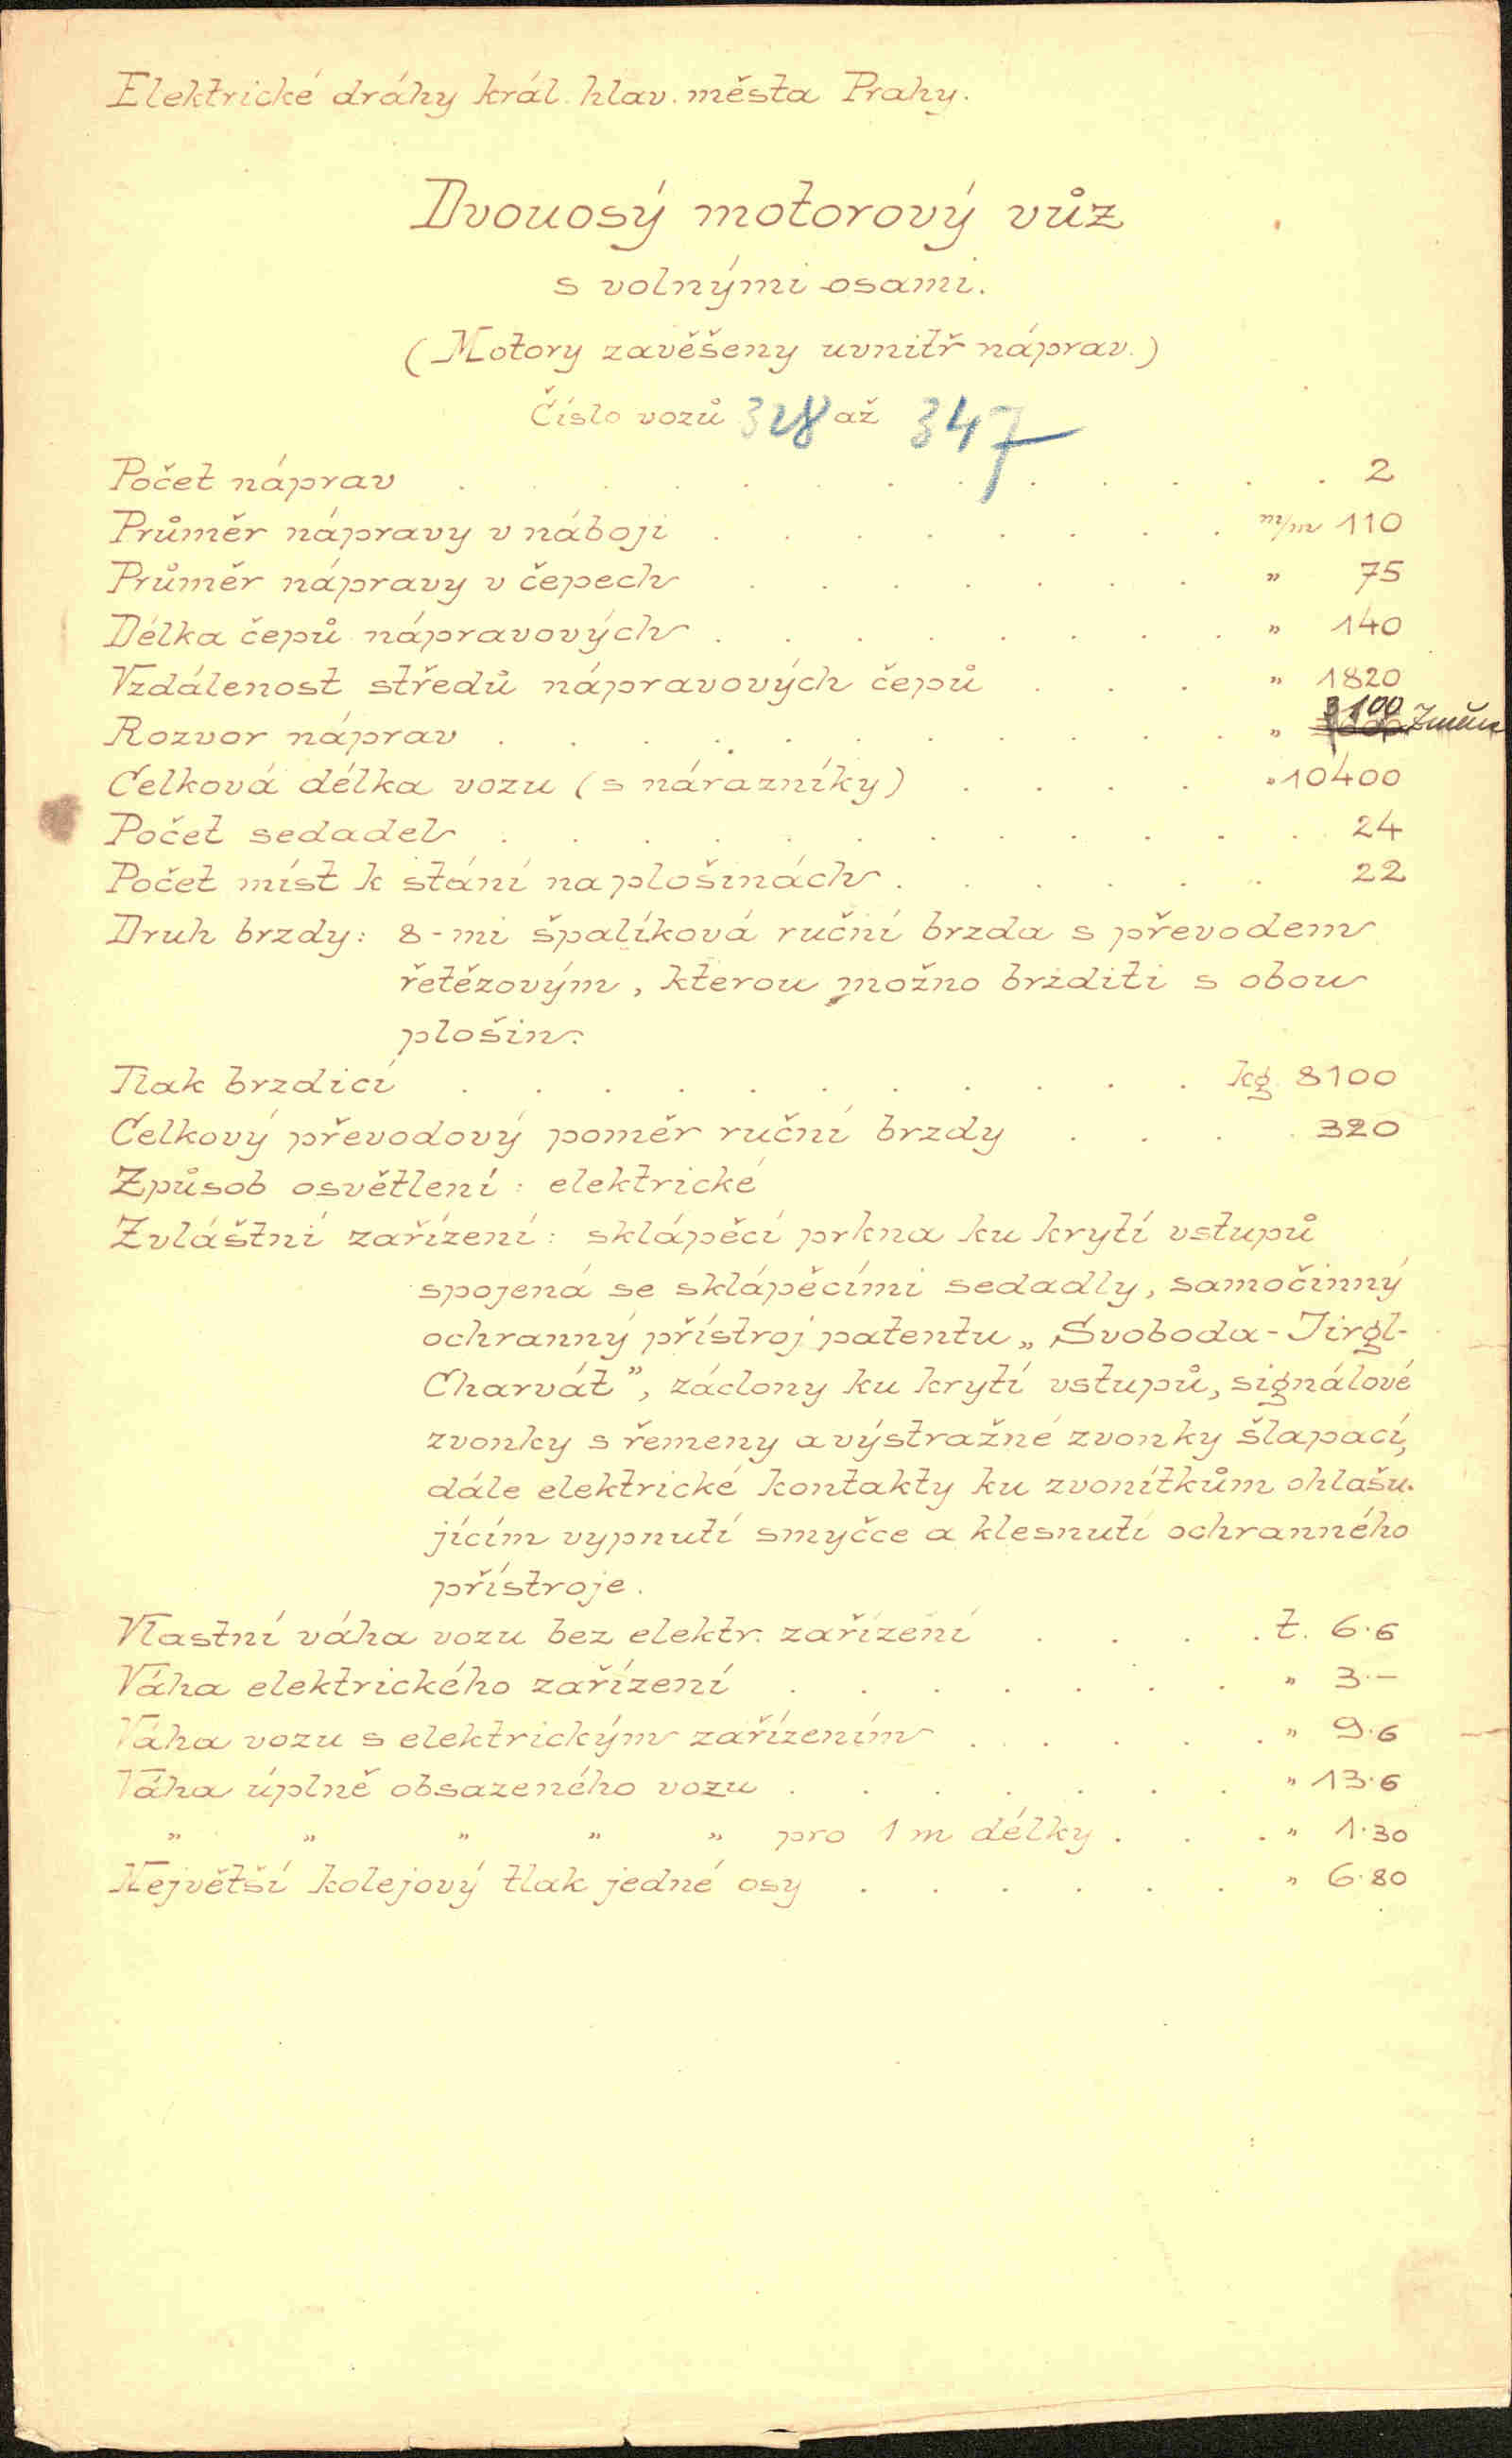 Elektrické dráhy král. hlav. města Prahy.
Dvouosý motorový vůz
s volnými osami.
(Motory zavěšeny uvnitř náprav.)
Číslo vozů 328 až 347
Počet náprav . . . . . . . . . . . . . 2
Průměr nápravy v náboji . . . . . . . . m/m 110
Průměr nápravy v čepech . . . . . . . " 75
Délka čepů nápravových . . . . . . . . " 140
Vzdálenost středů nápravových čepů . . . " 1820
Rozvor náprav . . . . . . . . . . . " 3100
Celková délka vozu (s nárazníky) . . . . " 10400
Počet sedadel . . . . . . . . . . . . 24
Počet míst k stání na plošinách . . . . . . 22
Druh brzdy: 8-mi špalíková ruční brzda s převodem
řetězovým, kterou možno brzditi s obou
plošin.
Tlak brzdicí . . . . . . . . . . . kg. 8100
Celkový převodový poměr ruční brzdy . . . . 320
Způsob osvětlení: elektrické
Zvláštní zařízení: sklápěcí prkna ku krytí vstupů
spojená se sklápěcími sedadly, samočinný
ochranný přístroj patentu „Svoboda-Jirgl-
Charvát", záclony ku krytí vstupů, signálové
zvonky s řemeny a výstražné zvonky šlapací,
dále elektrické kontakty ku zvonítkům ohlašu-
jícím vypnutí smyčce a klesnutí ochranného
přístroje.
Vlastní váha vozu bez elektr. zařízení . . . . t. 6·6
Váha elektrického zařízení . . . . . . . " 3·—
Váha vozu s elektrickým zařízením . . . . . " 9·6
Váha úplně obsazeného vozu . . . . . . . " 13·6
" " " " " pro 1 m délky . . . " 1·30
Největší kolejový tlak jedné osy . . . . . . " 6·80